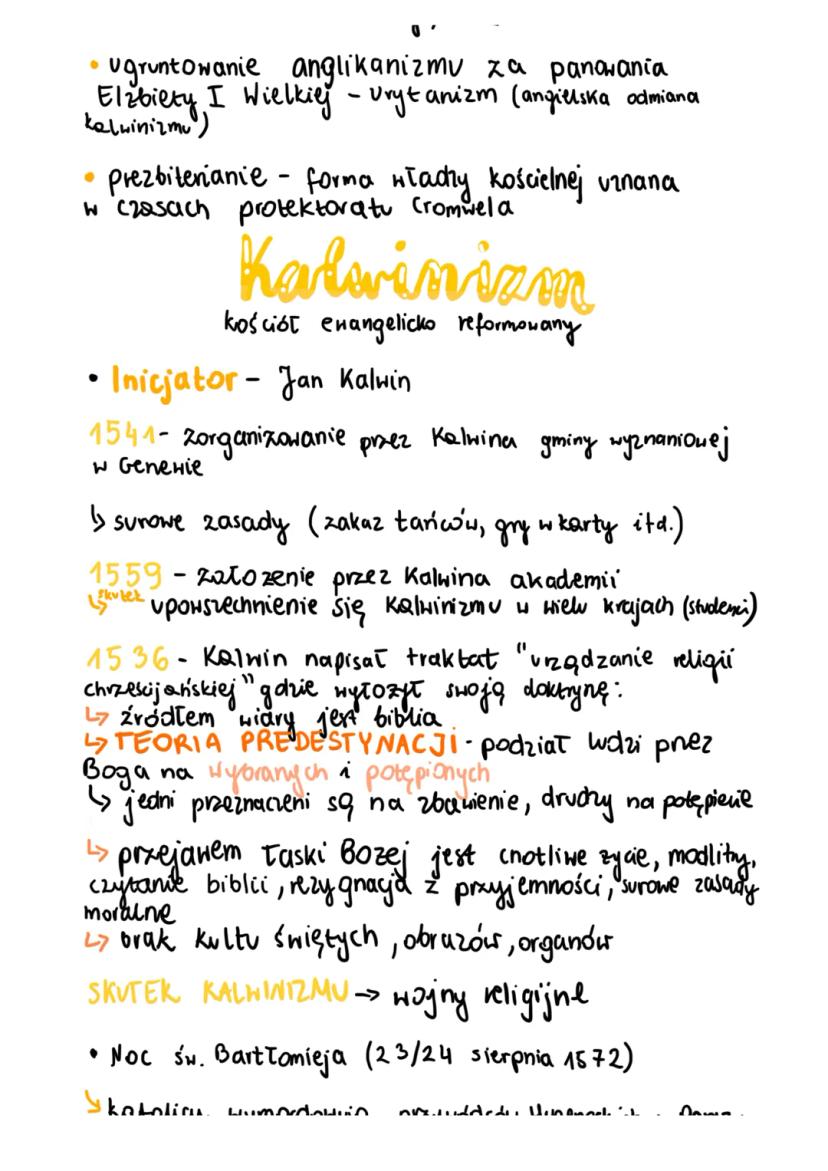 • ugruntowanie anglikanizmu za panowania
Elżbiety I Wielkiej - urytanizm (angielska odmiana
kalwinizmu)
• prezbiterianie - forma władzy kościelnej uznana
w czasach protektoratu Cromwela
Kalwinizm
kościół ewangelicko reformowany
• Inicjator - Jan Kalwin
1541 - zorganizowanie przez Kalwina gminy wyznaniowej
w Genewie
↳ surowe zasady (zakaz tańców, gry w karty itd.)
1559 - założenie przez Kalwina akademii
↳ skutek upowszechnienie się kalwinizmu w wielu krajach (studenci)
1536 - Kalwin napisał traktat "urządzanie religii
chrześcijańskiej" gdzie wyłożył swoją doktrynę:
↳ źródłem wiary jest biblia
↳ TEORIA PREDESTYNACJI - podział ludzi przez
Boga na wybranych i potępionych
↳ jedni przeznaczeni są na zbawienie, drudzy na potępienie
↳ przejawem łaski Bożej jest cnotliwe życie, modlitwy,
czytanie biblii, rezygnacja z przyjemności, surowe zasady
moralne
↳ brak kultu świętych, obrazów, organów
SKUTEK KALWINIZMU → wojny religijne
• Noc św. Bartłomieja (23/24 sierpnia 1572)
↳ katolicy